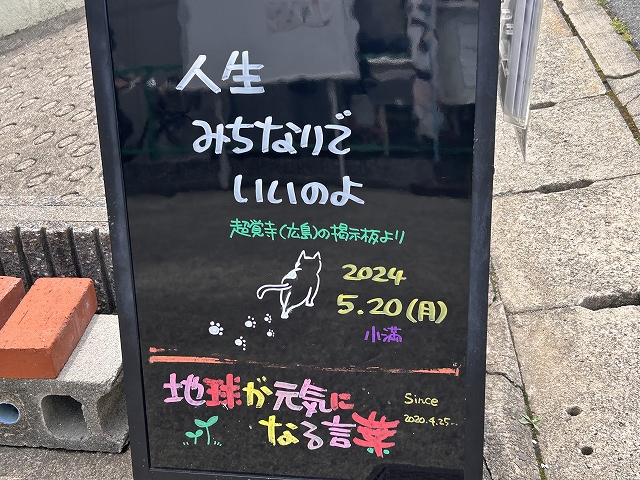 人生
みちなりで
いいのよ
超覚寺(広島)の掲示板より
2024
5.20(月)
小満
地球が元気に
なる言葉
Since
2020.4.25~